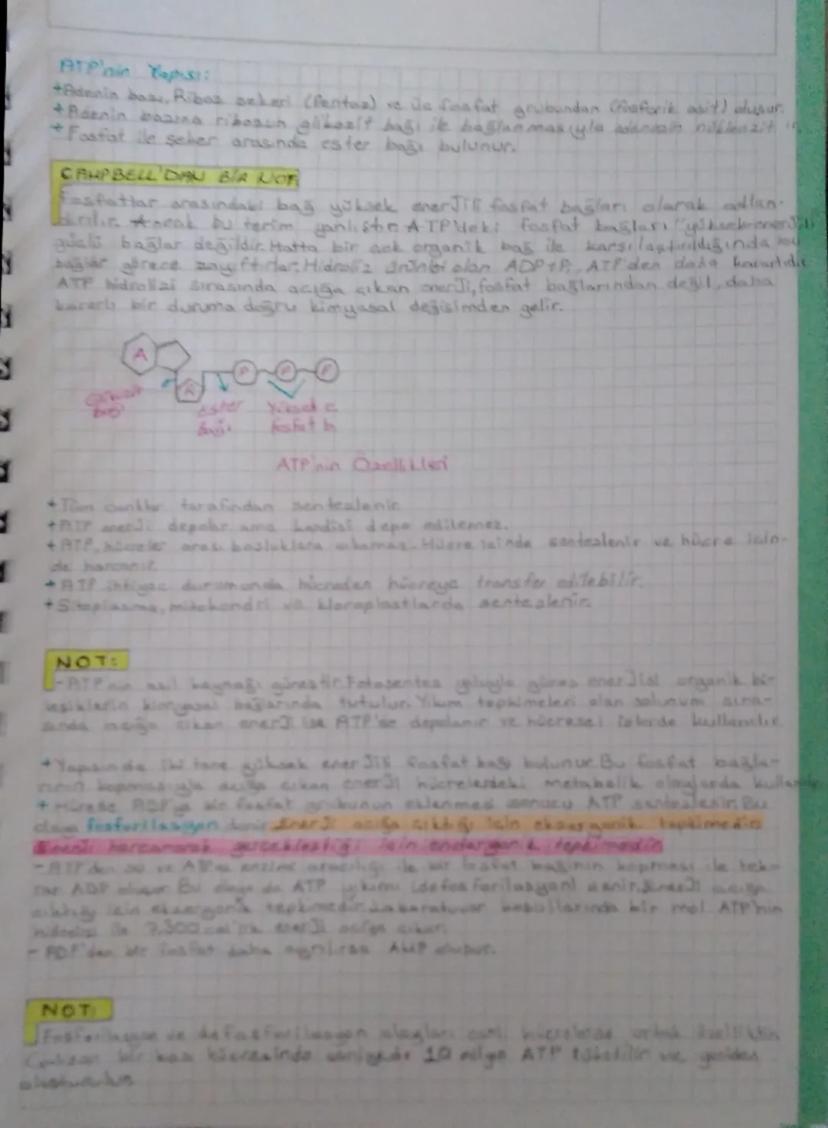 ATP'nin Yapısı:
+Adenin bazı, Riboz şekeri (Pentoz) ve üç fosfat grubundan (fosforik asit) oluşur.
+Adenin bazına ribozun glikozit bağı ile bağlanmasıyla adenozin nükleozit
+Fosfat ile şeker arasında ester bağı bulunur.
CAMPBELL'DAN BİR NOT
Fosfatlar arasındaki bağ yüksek enerjili fosfat bağları olarak adlan-
dırılır. Ancak bu terim yanlıştır. ATP'deki fosfat bağları "yüksek enerjili
güçlü bağlar değildir. Hatta bir çok organik bağ ile karşılaştırıldığında bu
bağlar görece zayıftırlar. Hidroliz ürünleri olan ADP+Pi, ATP'den daha kararlıdır.
ATP hidrolizi sırasında açığa çıkan enerji, fosfat bağlarından değil, daha
kararlı bir duruma doğru kimyasal değişimden gelir.
A
R P P P
Glikozit bağı
Ester bağı
Yüksek e. fosfat b
ATP'nin Özellikleri
+Tüm canlılar tarafından sentezlenir.
+ATP enerji depolar ama kendisi depo edilemez.
+ATP, hücreler arası boşluklara çıkamaz. Hücre içinde sentezlenir ve hücre için-
de harcanır.
+ATP ihtiyaç durumunda hücreden hücreye transfer edilebilir.
+Sitoplazma, mitokondri ve kloroplastlarda sentezlenir.
NOT:
-ATP'nin asıl kaynağı güneştir. Fotosentez yoluyla güneş enerjisi organik bi-
leşiklerin kimyasal bağlarında tutulur. Yıkım tepkimeleri olan solunum sıra-
sında açığa çıkan enerji ise ATP'de depolanır ve hücresel işlerde kullanılır.
+Yapısında iki tane yüksek enerjili fosfat bağı bulunur. Bu fosfat bağla-
rının kopmasıyla açığa çıkan enerji hücrelerdeki metabolik olaylarda
+Hücrede ADP'ye bir fosfat grubunun eklenmesi sonucu ATP sentezlenir. Bu
olaya fosforilasyon denir. Enerji açığa çıktığı için ekzergonik tepkimedir.
Enerji harcanarak gerçekleştiği için endergonik tepkimedir.
-ATP'den su ve ATPaz enzimi aracılığı ile bir fosfat bağının kopması ile tek-
rar ADP oluşur. Bu olaya da ATP yıkımı (defosforilasyon) denir. Enerji açığa
çıktığı için ekzergonik tepkimedir. Laboratuvar koşullarında bir mol ATP'nin
hidrolizi ile 7.300 enerji açığa çıkar.
- ADP'den bir fosfat daha ayrılırsa AMP oluşur.
NOT:
Fosforilasyon ve defosforilasyon olayları canlı hücrelerde ortak özelliktir.
Çalışan bir kas hücresinde saniyede 10 milyon ATP tüketilir ve yeniden
oluşturulur.